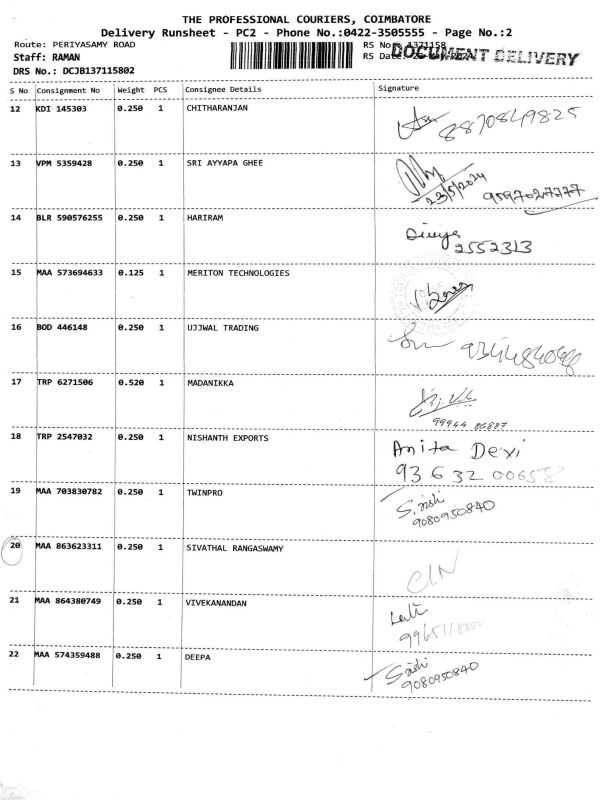 THE PROFESSIONAL COURIERS, COIMBATORE
Delivery Runsheet - PC2 - Phone No.:0422-3505555 - Page No.:2
Route: PERIYASAMY ROAD RS No 1371158
Staff: RAMAN RS Date: DOCUMENT DELIVERY
DRS No.: DCJB137115802
S No Consignment No Weight PCS Consignee Details Signature
12 KDI 145303 0.250 1 CHITHARANJAN 8870849825
13 VPM 5359428 0.250 1 SRI AYYAPA GHEE
23/5/2024 9597027777
14 BLR 590576255 0.250 1 HARIRAM Divya
2552313
15 MAA 573694633 0.125 1 MERITON TECHNOLOGIES
16 BOD 446148 0.250 1 UJJWAL TRADING
17 TRP 6271506 0.520 1 MADANIKKA
99944 86887
18 TRP 2547032 0.250 1 NISHANTH EXPORTS Anita Devi
93632 00658
19 MAA 703830782 0.250 1 TWINPRO
9080950840
20 MAA 863623311 0.250 1 SIVATHAL RANGASWAMY
21 MAA 864380749 0.250 1 VIVEKANANDAN
22 MAA 574359488 0.250 1 DEEPA
9080950840